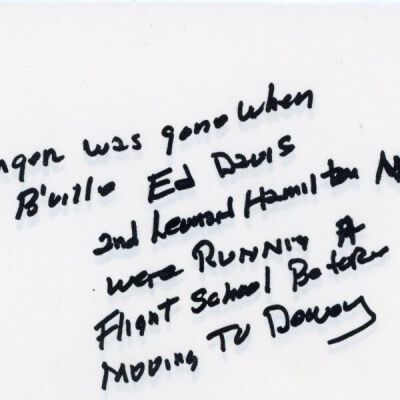 was gone when
B'ville Ed Davis
and Leonard Hamilton
were Running A
Flight School Before
Moving To Dewey